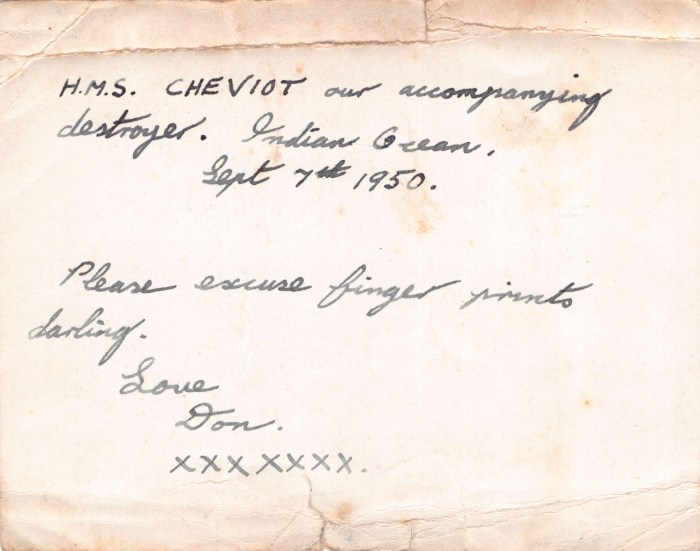 H.M.S. CHEVIOT our accompanying
destroyer. Indian Ocean.
Sept 7th 1950.
Please excuse finger prints
darling.
Love
Don.
xxxxxxx.